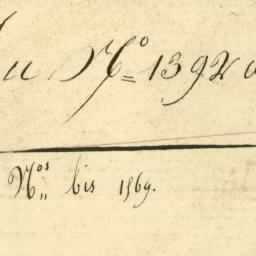 Nº 1392
Nos bis 1569.